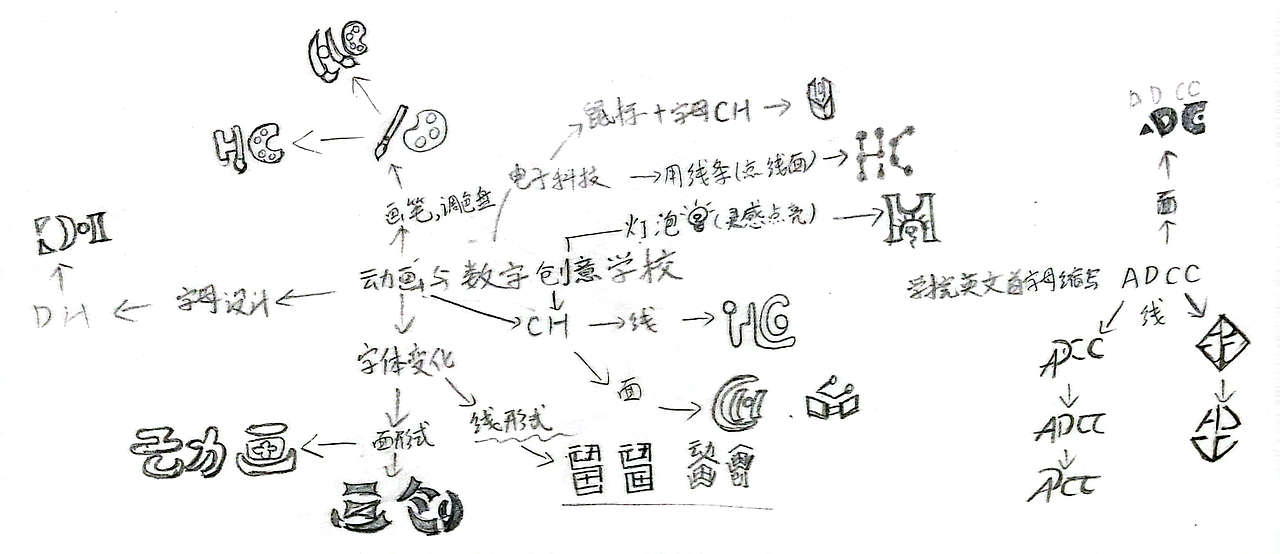 HC
HC
鼠标+字母CH
A D CC
ADC
电子科技
用线条(点线面)
HC
画笔,调色盘
灯泡(灵感点亮)
面
动画与数字创意学校
学院英文首字母缩写 ADCC
DH
字母设计
CH
线
HC
线
字体变化
ADCC
面
面形式
线形式
动画
ADCC
动画
动画
动画
ADCC